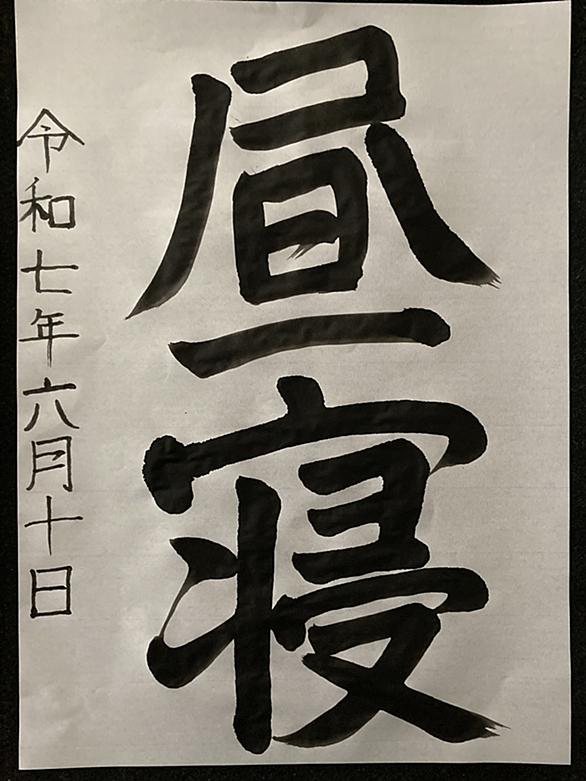 昼寝
令和七年六月十日